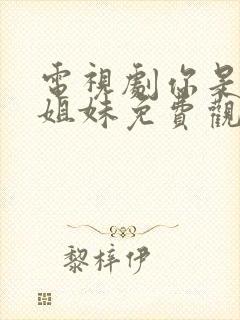 電視劇你是
姐妹免費觀
黎梓伊